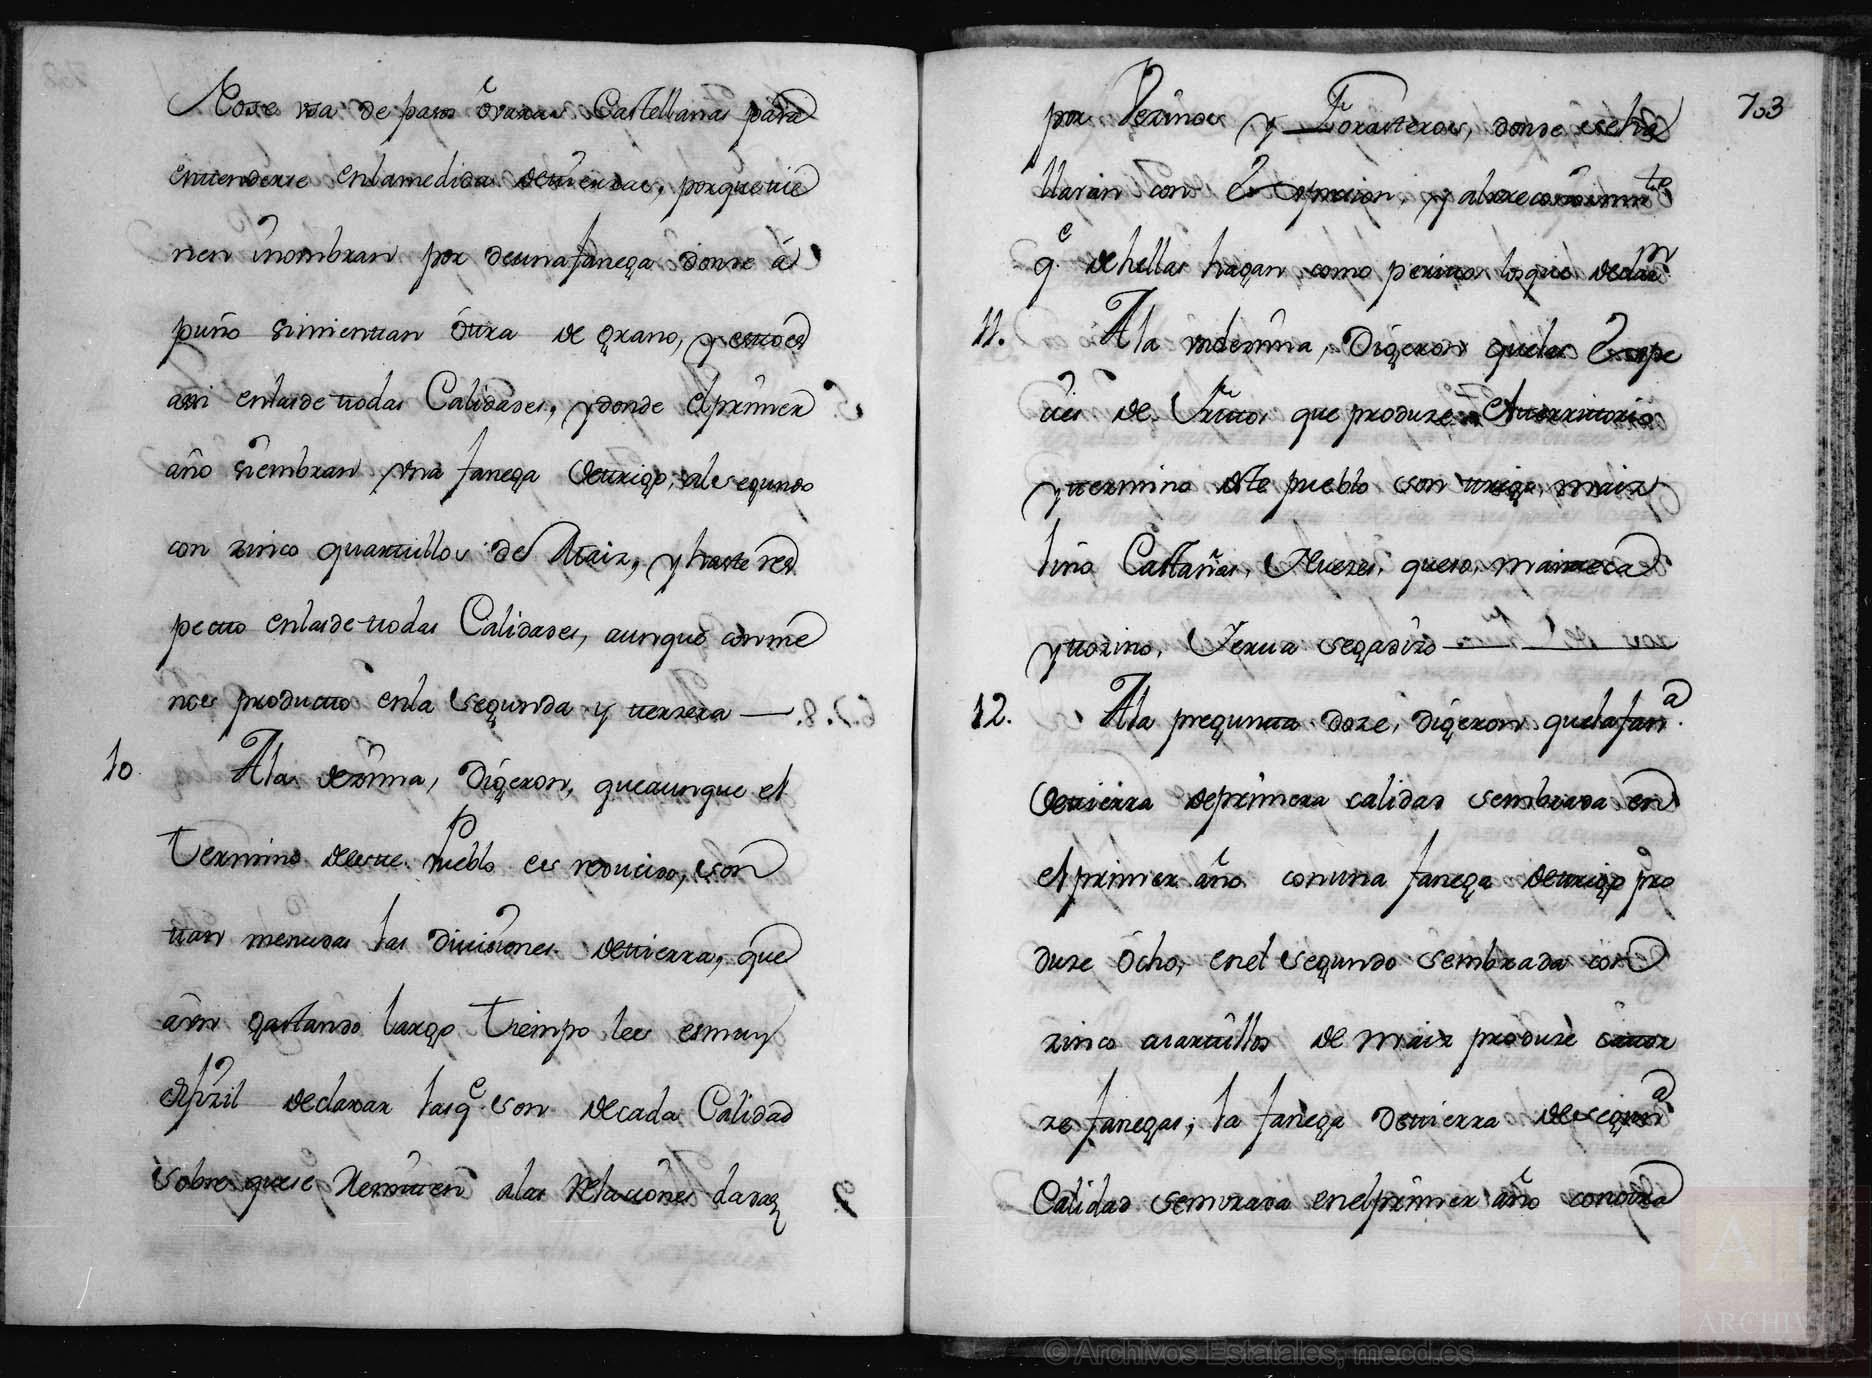 Nose usa de pasos ó varas Castellanas para
entenderse enlamedida detierras, porque tie
nen i nombran por deuna fanega donde á
puño simientan ótra de grano, y esto es
assi enlasde todas Calidades, y donde el primer
año siembran una fanega detrigo, al segundo
con zinco quartillos de Maiz, y haste res
pecto enlasde todas Calidades, aunque conme
nos producto enla segunda y terzera —
10. Ala dezima, Digeron, queaunque el
Termino deeste Pueblo es reducido, son
tan menudas las divisiones detierra, que
aún gastando largo Tiempo les esmuy
difizil declarar lasq.e son decada Calidad
sobre quese remiten alas Relaciones dadas
703
por Vezinos y Forasteros, donde seha
llarán con Expresion, y al reconozimto
q.e dehellas hagan como peritos losque declarn
11. Ala undezima, Digeron quelas Espe
cies de Frutos que produze el territorio
y termino deste pueblo son trigo, maiz
lino Castañas, Nuezes, queso, manteca
y tozino, Yerva segadizo —
12. Ala pregunta doze, digeron quelafana.
detierra deprimera calidad sembrada en
el primer año conuna fanega detrigo pro
duze ócho, enel segundo sembrada con
zinco cuartillos de maiz produze cator
ze fanegas, la fanega detierra desegunda
Calidad semvrada enelprimer año conotra
© Archivos Estatales, mecd.es
ARCHIVOS
ESTATALES